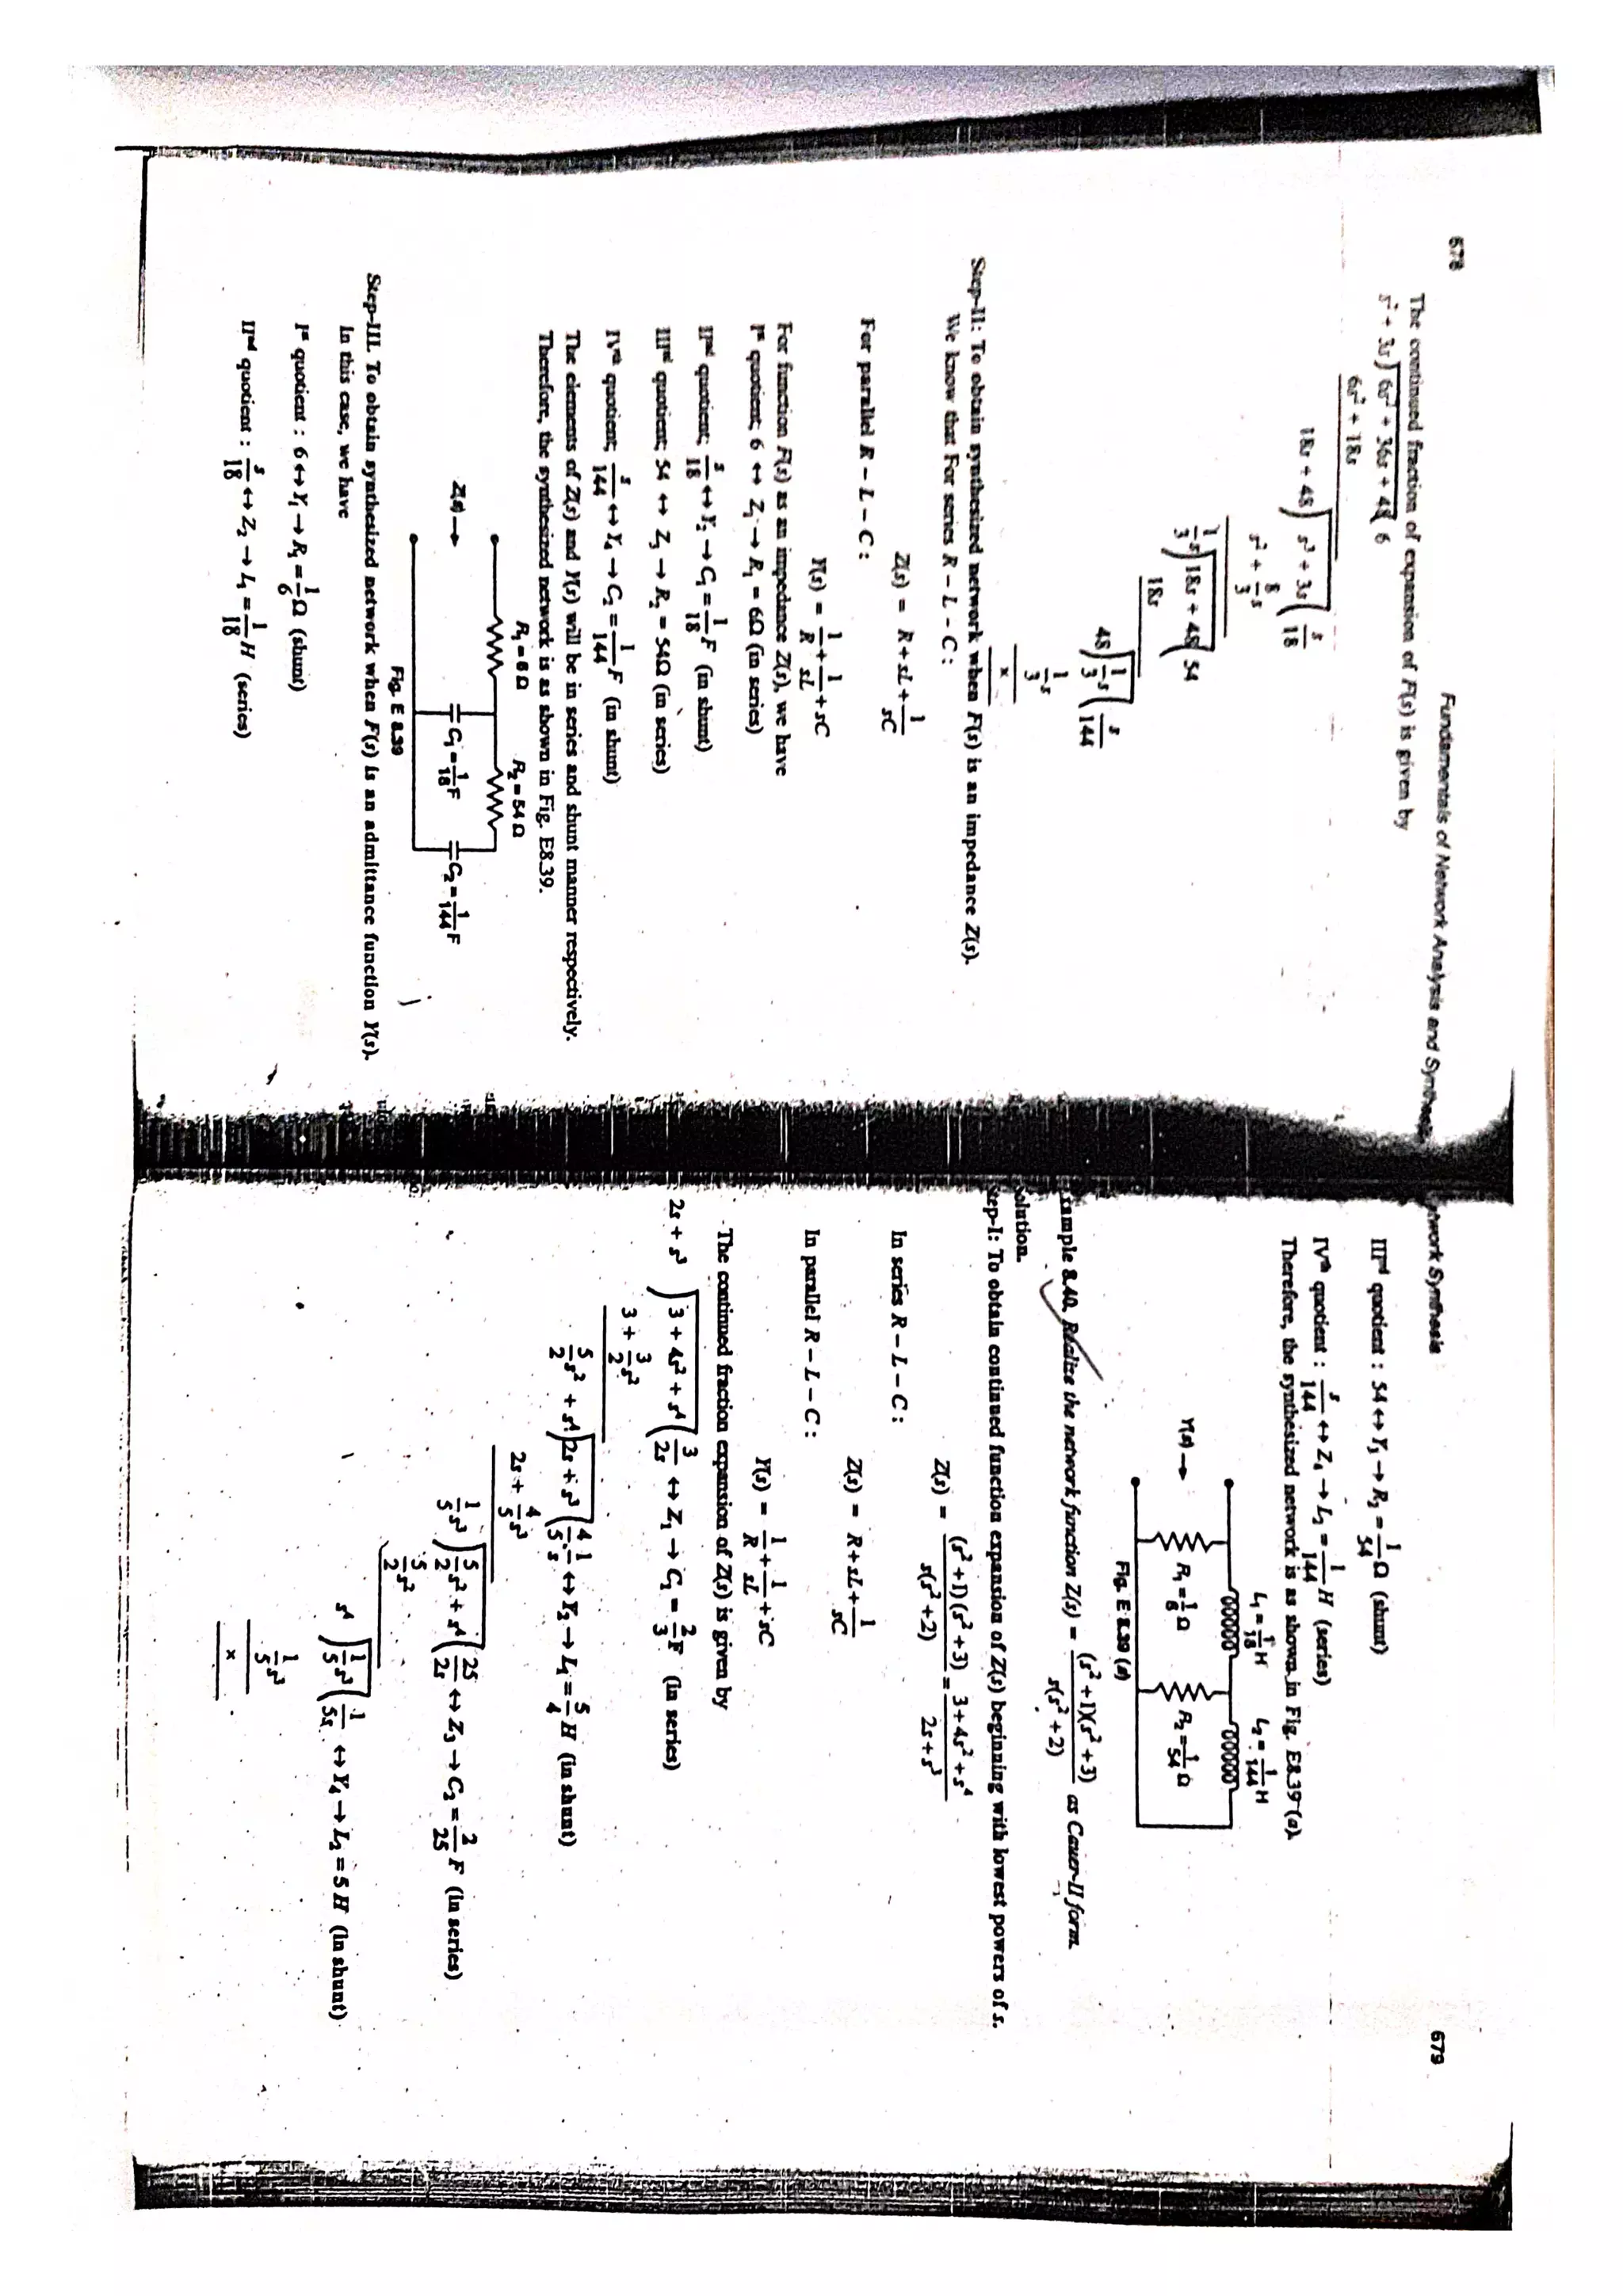 678
Fundamentals of Network Analysis and Synthesis
The continued fraction of expansion of F(s) is given by
s² + 3s) 6s² + 36s + 48 ( 6
6s² + 18s
18s + 48) s² + 3s ( s/18
s² + 8/3 s
1/3 s) 18s + 48 ( 54
18s
48) 1/3 s ( s/144
1/3 s
×
Step-II: To obtain synthesized network when F(s) is an impedance Z(s).
We know that For series R – L – C :
Z(s) = R + sL + 1/sC
For parallel R – L – C :
Y(s) = 1/R + 1/sL + sC
For function F(s) as an impedance Z(s), we have
Iˢᵗ quotient; 6 ↔ Z₁ → R₁ = 6Ω (in series)
IIⁿᵈ quotient; s/18 ↔ Y₂ → C₁ = 1/18 F (in shunt)
IIIʳᵈ quotient; 54 ↔ Z₃ → R₂ = 54Ω (in series)
IVᵗʰ quotient; s/144 ↔ Y₄ → C₂ = 1/144 F (in shunt)
The elements of Z(s) and Y(s) will be in series and shunt manner respectively.
Therefore, the synthesized network is as shown in Fig. E8.39.
R₁ = 6 Ω R₂ = 54 Ω
Z(s) → C₁ = 1/18 F C₂ = 1/144 F
Fig. E 8.39
Step-III. To obtain synthesized network when F(s) is an admittance function Y(s).
In this case, we have
Iˢᵗ quotient : 6 ↔ Y₁ → R₁ = 1/6 Ω (shunt)
IIⁿᵈ quotient : s/18 ↔ Z₂ → L₁ = 1/18 H (series)
twork Synthesis
679
IIIʳᵈ quotient : 54 ↔ Y₃ → R₂ = 1/54 Ω (shunt)
IVᵗʰ quotient : s/144 ↔ Z₄ → L₂ = 1/144 H (series)
Therefore, the synthesized network is as shown in Fig. E8.39 (a).
L₁ = 1/18 H L₂ = 1/144 H
Y(s) → R₁ = 1/6 Ω R₂ = 1/54 Ω
Fig. E 8.39 (a)
xample 8.40. Realize the network function Z(s) = (s² + 1)(s² + 3)/s(s² + 2) as Cauer-II form.
olution.
tep-I: To obtain continued function expansion of Z(s) beginning with lowest powers of s.
Z(s) = (s² + 1)(s² + 3)/s(s² + 2) = 3 + 4s² + s⁴/2s + s³
In series R – L – C :
Z(s) = R + sL + 1/sC
In parallel R – L – C :
Y(s) = 1/R + 1/sL + sC
The continued fraction expansion of Z(s) is given by
2s + s³ ) 3 + 4s² + s⁴ ( 3/2s ↔ Z₁ → C₁ = 2/3 F (in series)
3 + 3/2 s²
5/2 s² + s⁴) 2s + s³ ( 4/5 · 1/s ↔ Y₂ → L₁ = 5/4 H (in shunt)
2s + 4/5 s³
1/5 s³ ) 5/2 s² + s⁴ ( 25/2s ↔ Z₃ → C₂ = 2/25 F (in series)
5/2 s²
s⁴ ) 1/5 s³ ( 1/5s ↔ Y₄ → L₂ = 5 H (in shunt)
1/5 s³
×